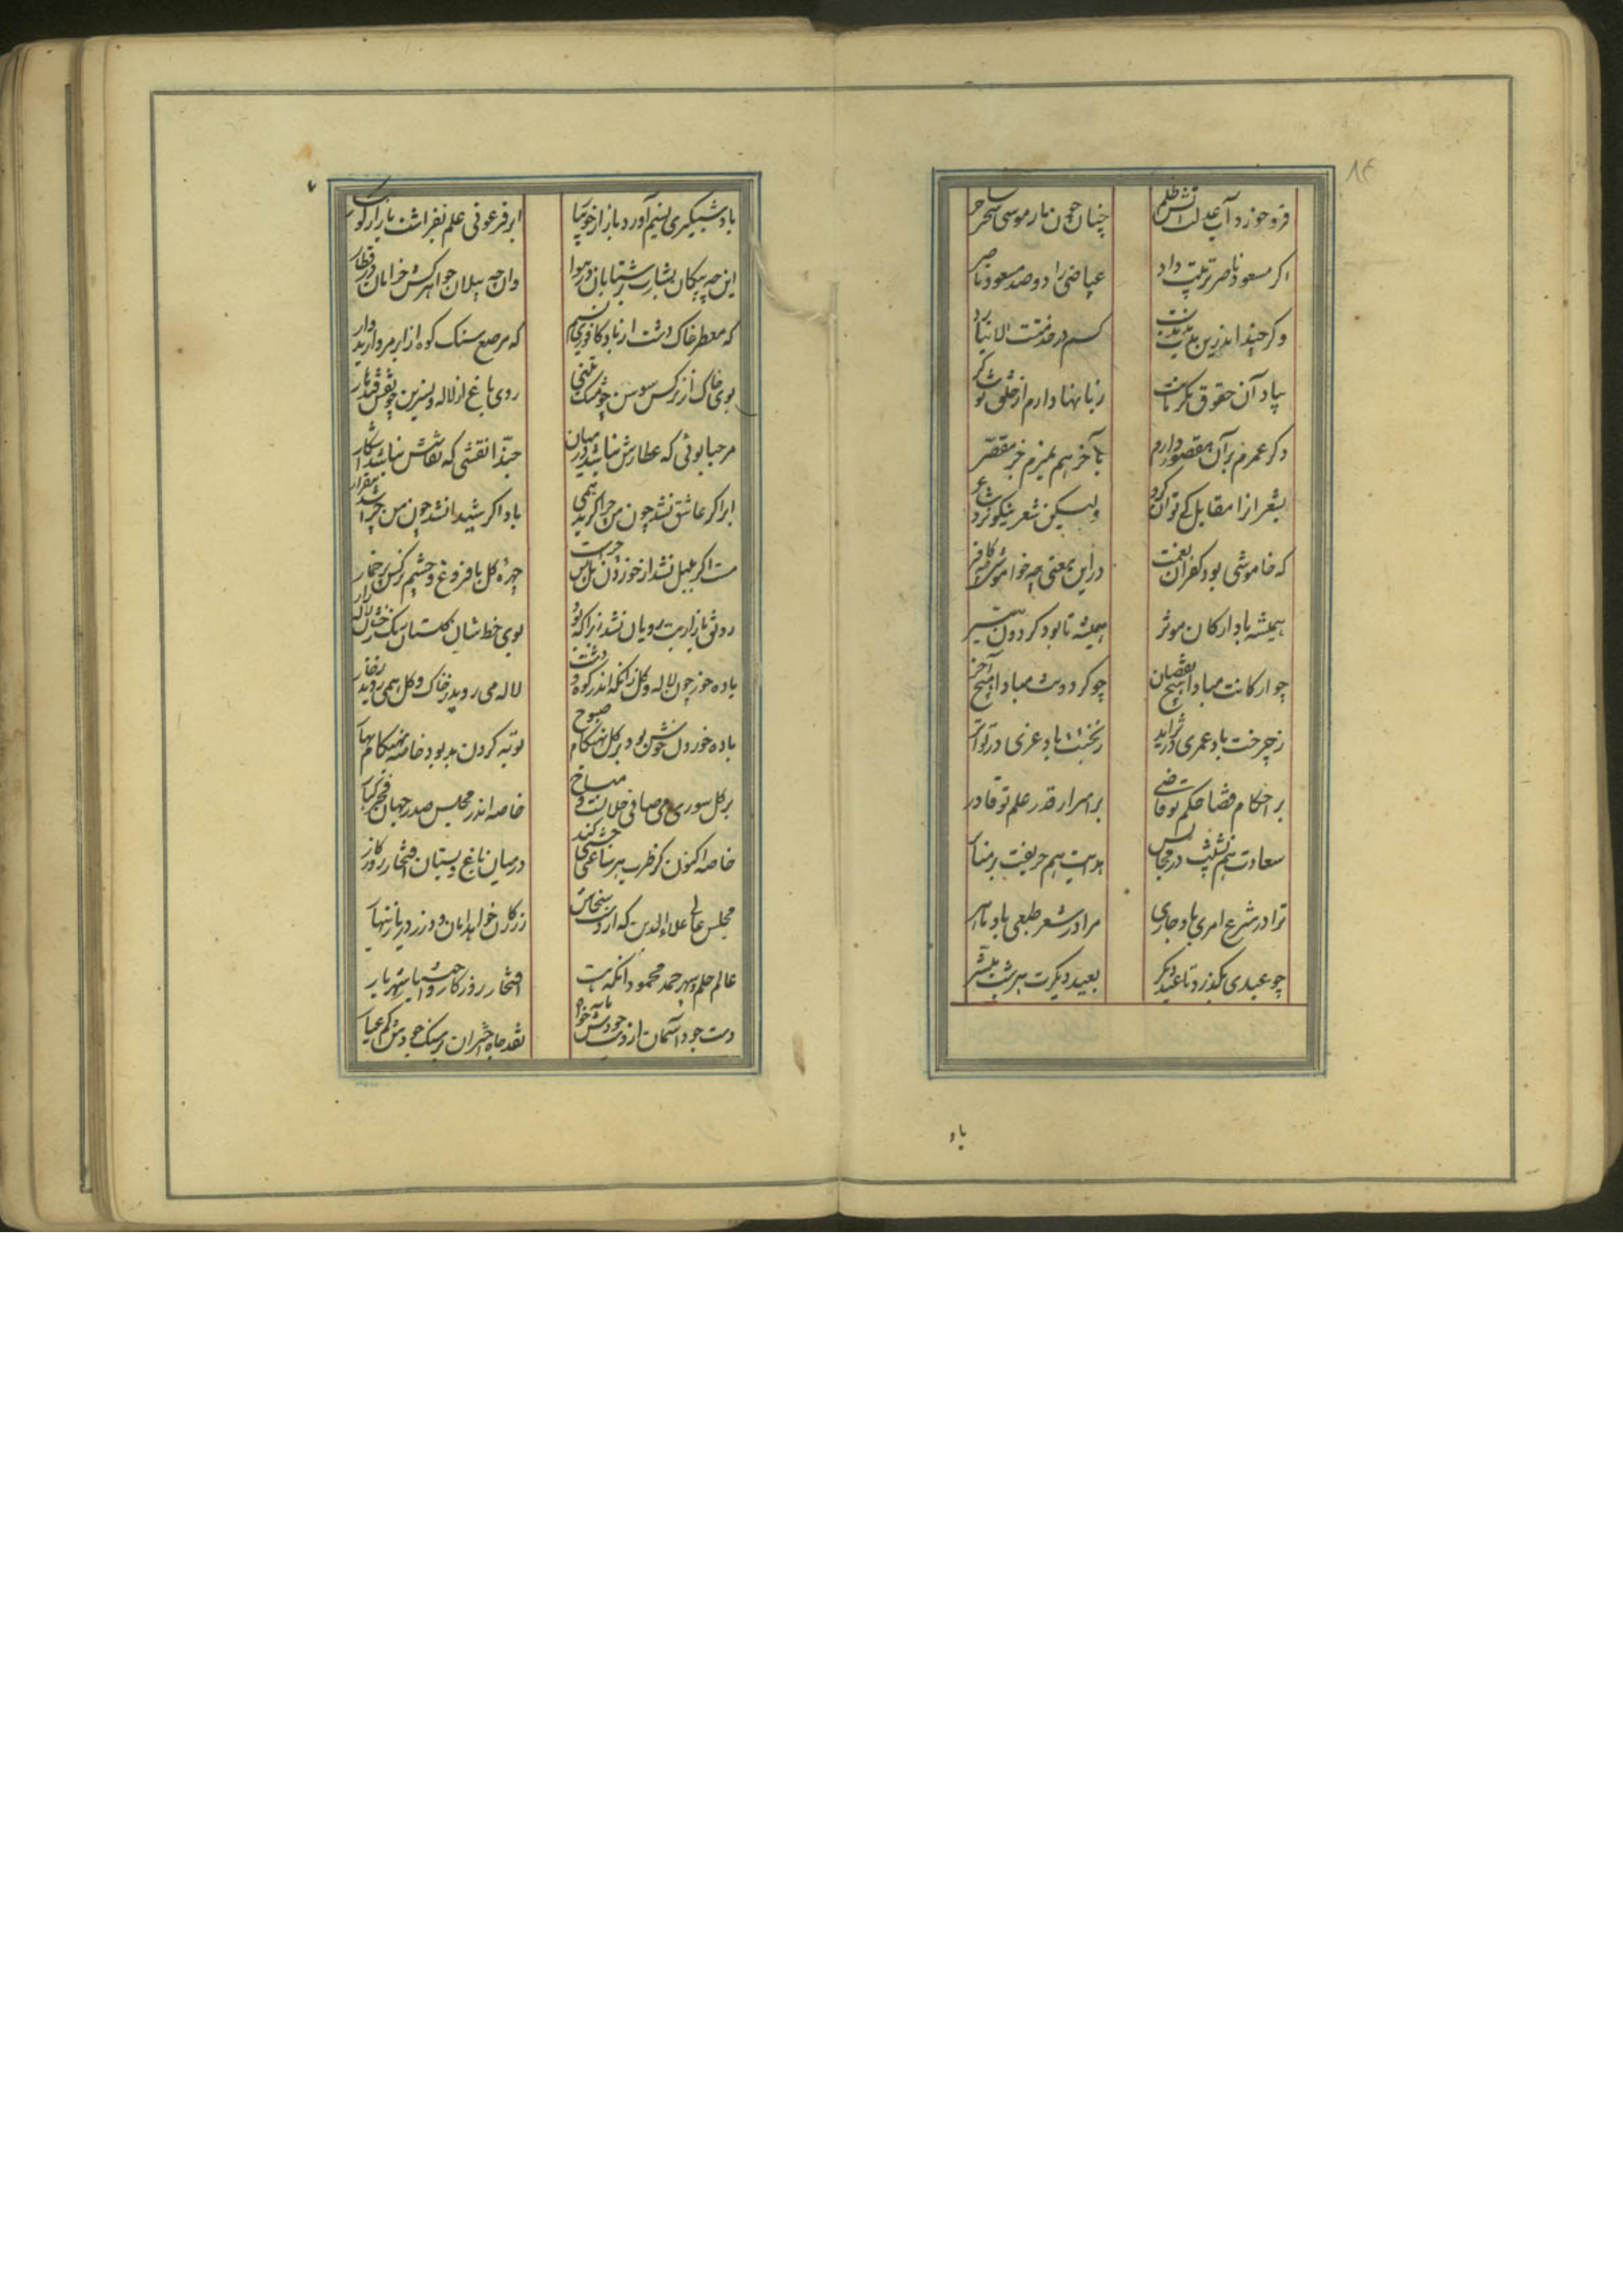 ۸۴
فرو خورد آب عدلت آتش ظلم
چنان چون مار موسی سحر ساحر
اکر مسعود ناصر تربیت داد
عیاضی را دو صد مسعود ناصر
وکر چند اندرین مدت
کسم در خدمتت الا
بیاد آن حقوق مکرمات
زبانها دارم از خلق تو شاکر
دکر عمرم بر آن مقصور دارم
بآخر هم بمیرم جز مقصر
بشعر آنرا مقابل کی توان کرد
ولیکن شعر نیکوتر ز شاعر
که خاموشی بود کفران نعمت
در این معنی چه خواموش و چه کافر
همیشه باد ارکان موثر
همیشه تا بود کردون
چو ارکانت مبادا هیچ نقصان
چو کردونت مبادا هیچ آخر
ز چرخت باد عمری در تزاید
ز بختت باد عزی در تواتر
بر احکام قضا حکم تو قاضی
بر اسرار قدر علم تو قادر
سعادت هم نشینت در مجالس
هدایت هم حریفت بر منابر
ترا در شرع امری باد جاری
مرا در شعر طبعی باد ماهر
چو عیدی بکذرد تا عید دیکر
بعید دیکرت هر شب مبشر
باد
۷
باد شبکیری نسیم آورد باز از جویبار
ابر فروعونی علم بفراشت باز از کوهسار
این چه پیکان بشارت بر شتابان در هوا
وان چه پیلان جواهرکش خرامان در قطار
که معطر خاک دشت از باد کافوری نسیم
که مرصع سنک کوه از ابر مروارید بار
بوی خاک از نرکس و سوسن چو مشک تبتی
روی باغ از لاله و نسرین چو نقش قندهار
مرحبا بوئی که عطارش نباشد در میان
حبذا نقشی که نقاشش نباشد آشکار
ابر اکر عاشق نشد چون من چرا کرید همی
باد اکر شیدا نشد چون من چرا شد بیقرار
مست اکر بلبل نشد از خوردن مل پس چراست
چهره کل با فروغ و چشم نرکس پر خمار
رونق بازار بت رویان نشد زیرا که بود
بوی خط شان کلستان رنک رخشان لاله زار
باده خور چون لاله و کل زانکه اندر کوه و دشت
لاله می روید ز خاک و کل همی روید ز خار
باده خوردن خوش بود بر کل بهنکام صبوح
توبه کردن بد بود خاصه بهنکام بهار
بر کل سوری می صافی حلالست و مباح
خاصه اندر مجلس صدر جهان فخر کبار
خاصه اکنون کز طرب هر ساعتی جشنی کند
در میان باغ و بستان افتخار روزکار
مجلس عالی علاءالدین که از دست سخاش
زر کان خواهد امان و در ز دریا زینهار
عالم حلم و سپهر حمد محمود آنکه هست
افتخار روزکار و اختیار شهریار
دست جود آسمان از دست جودش مایه خواه
نقد جاه اختران بر سنک جودش کم عیار